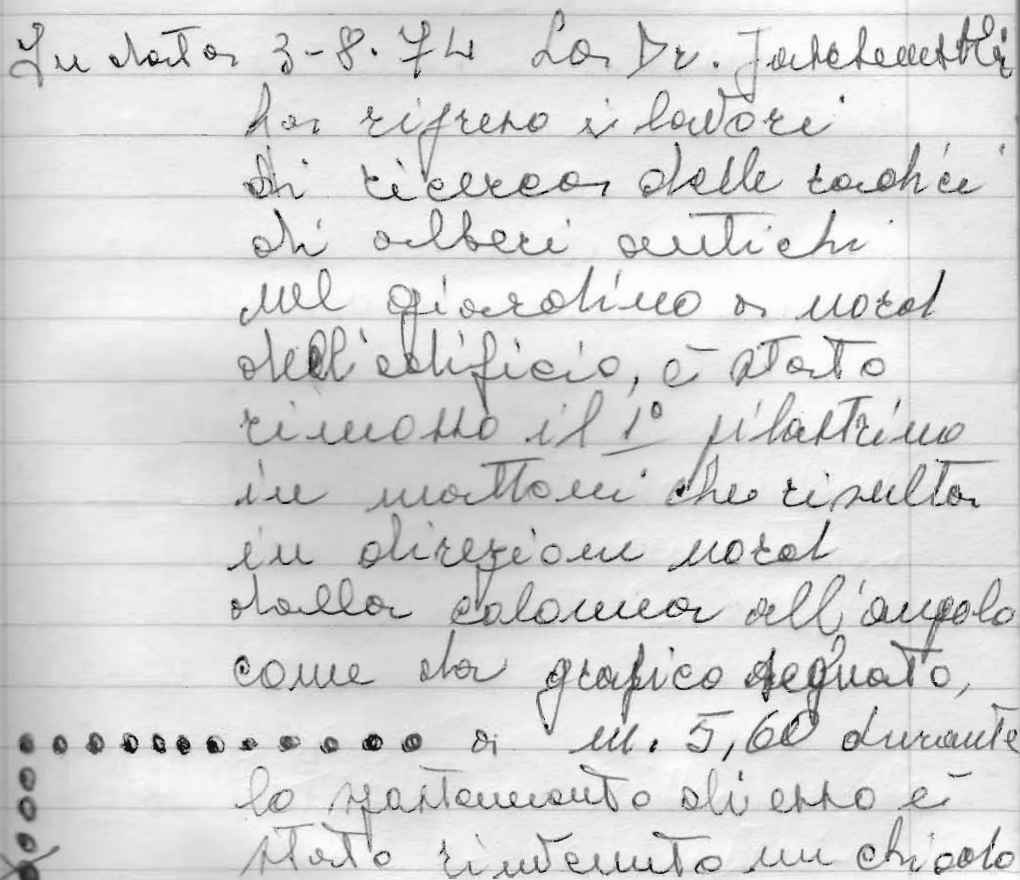 In data 3-8.74 La Dr. Jaschemski
ha ripreso i lavori
di ricerca delle radici
di alberi antichi
nel giardino a nord
dell'edificio, è stato
rimosso il 1° pilastrino
in mattoni che risulta
in direzione nord
dalla colonna all'angolo
come da grafico segnato,
a m. 5,60 durante
lo spostamento di esso è
stato rinvenuto un chiodo